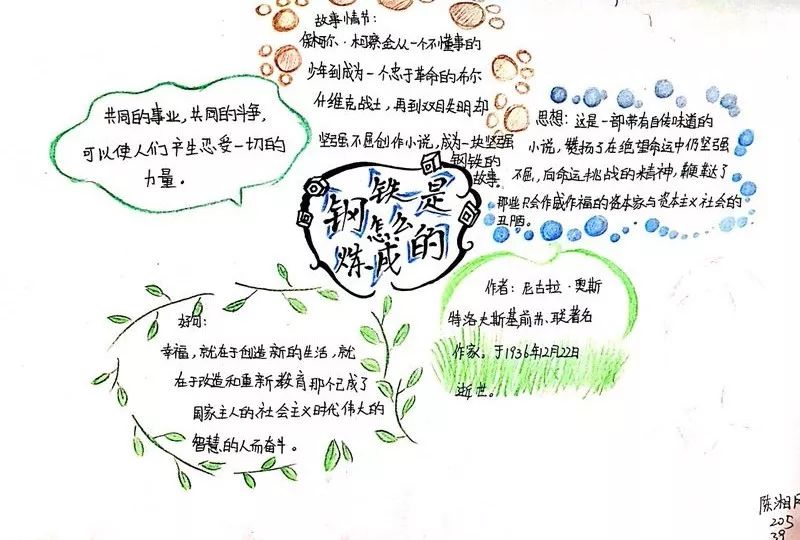 故事情节：
保柯尔·柯察金从一个不懂事的
少年到成为一个忠于革命的布尔
什维克战士，再到双目失明却
坚强不屈创作小说，成为一块坚强
钢铁的
故事。
共同的事业，共同的斗争，
可以使人们产生忍受一切的
力量。
思想：这是一部带有自传味道的
小说，赞扬了在绝望命运中仍坚强
不屈，向命运挑战的精神，鞭挞了
那些只会作威作福的资本家与资本主义社会的
丑陋。
钢铁是
怎么
炼成的
作者：尼古拉·奥斯
特洛夫斯基前苏联著名
作家。于1936年12月22日
逝世。
好句：
幸福，就在于创造新的生活，就
在于改造和重新教育那个已成了
国家主人的社会主义时代伟大的
智慧的人而奋斗。
陈湘
205
39